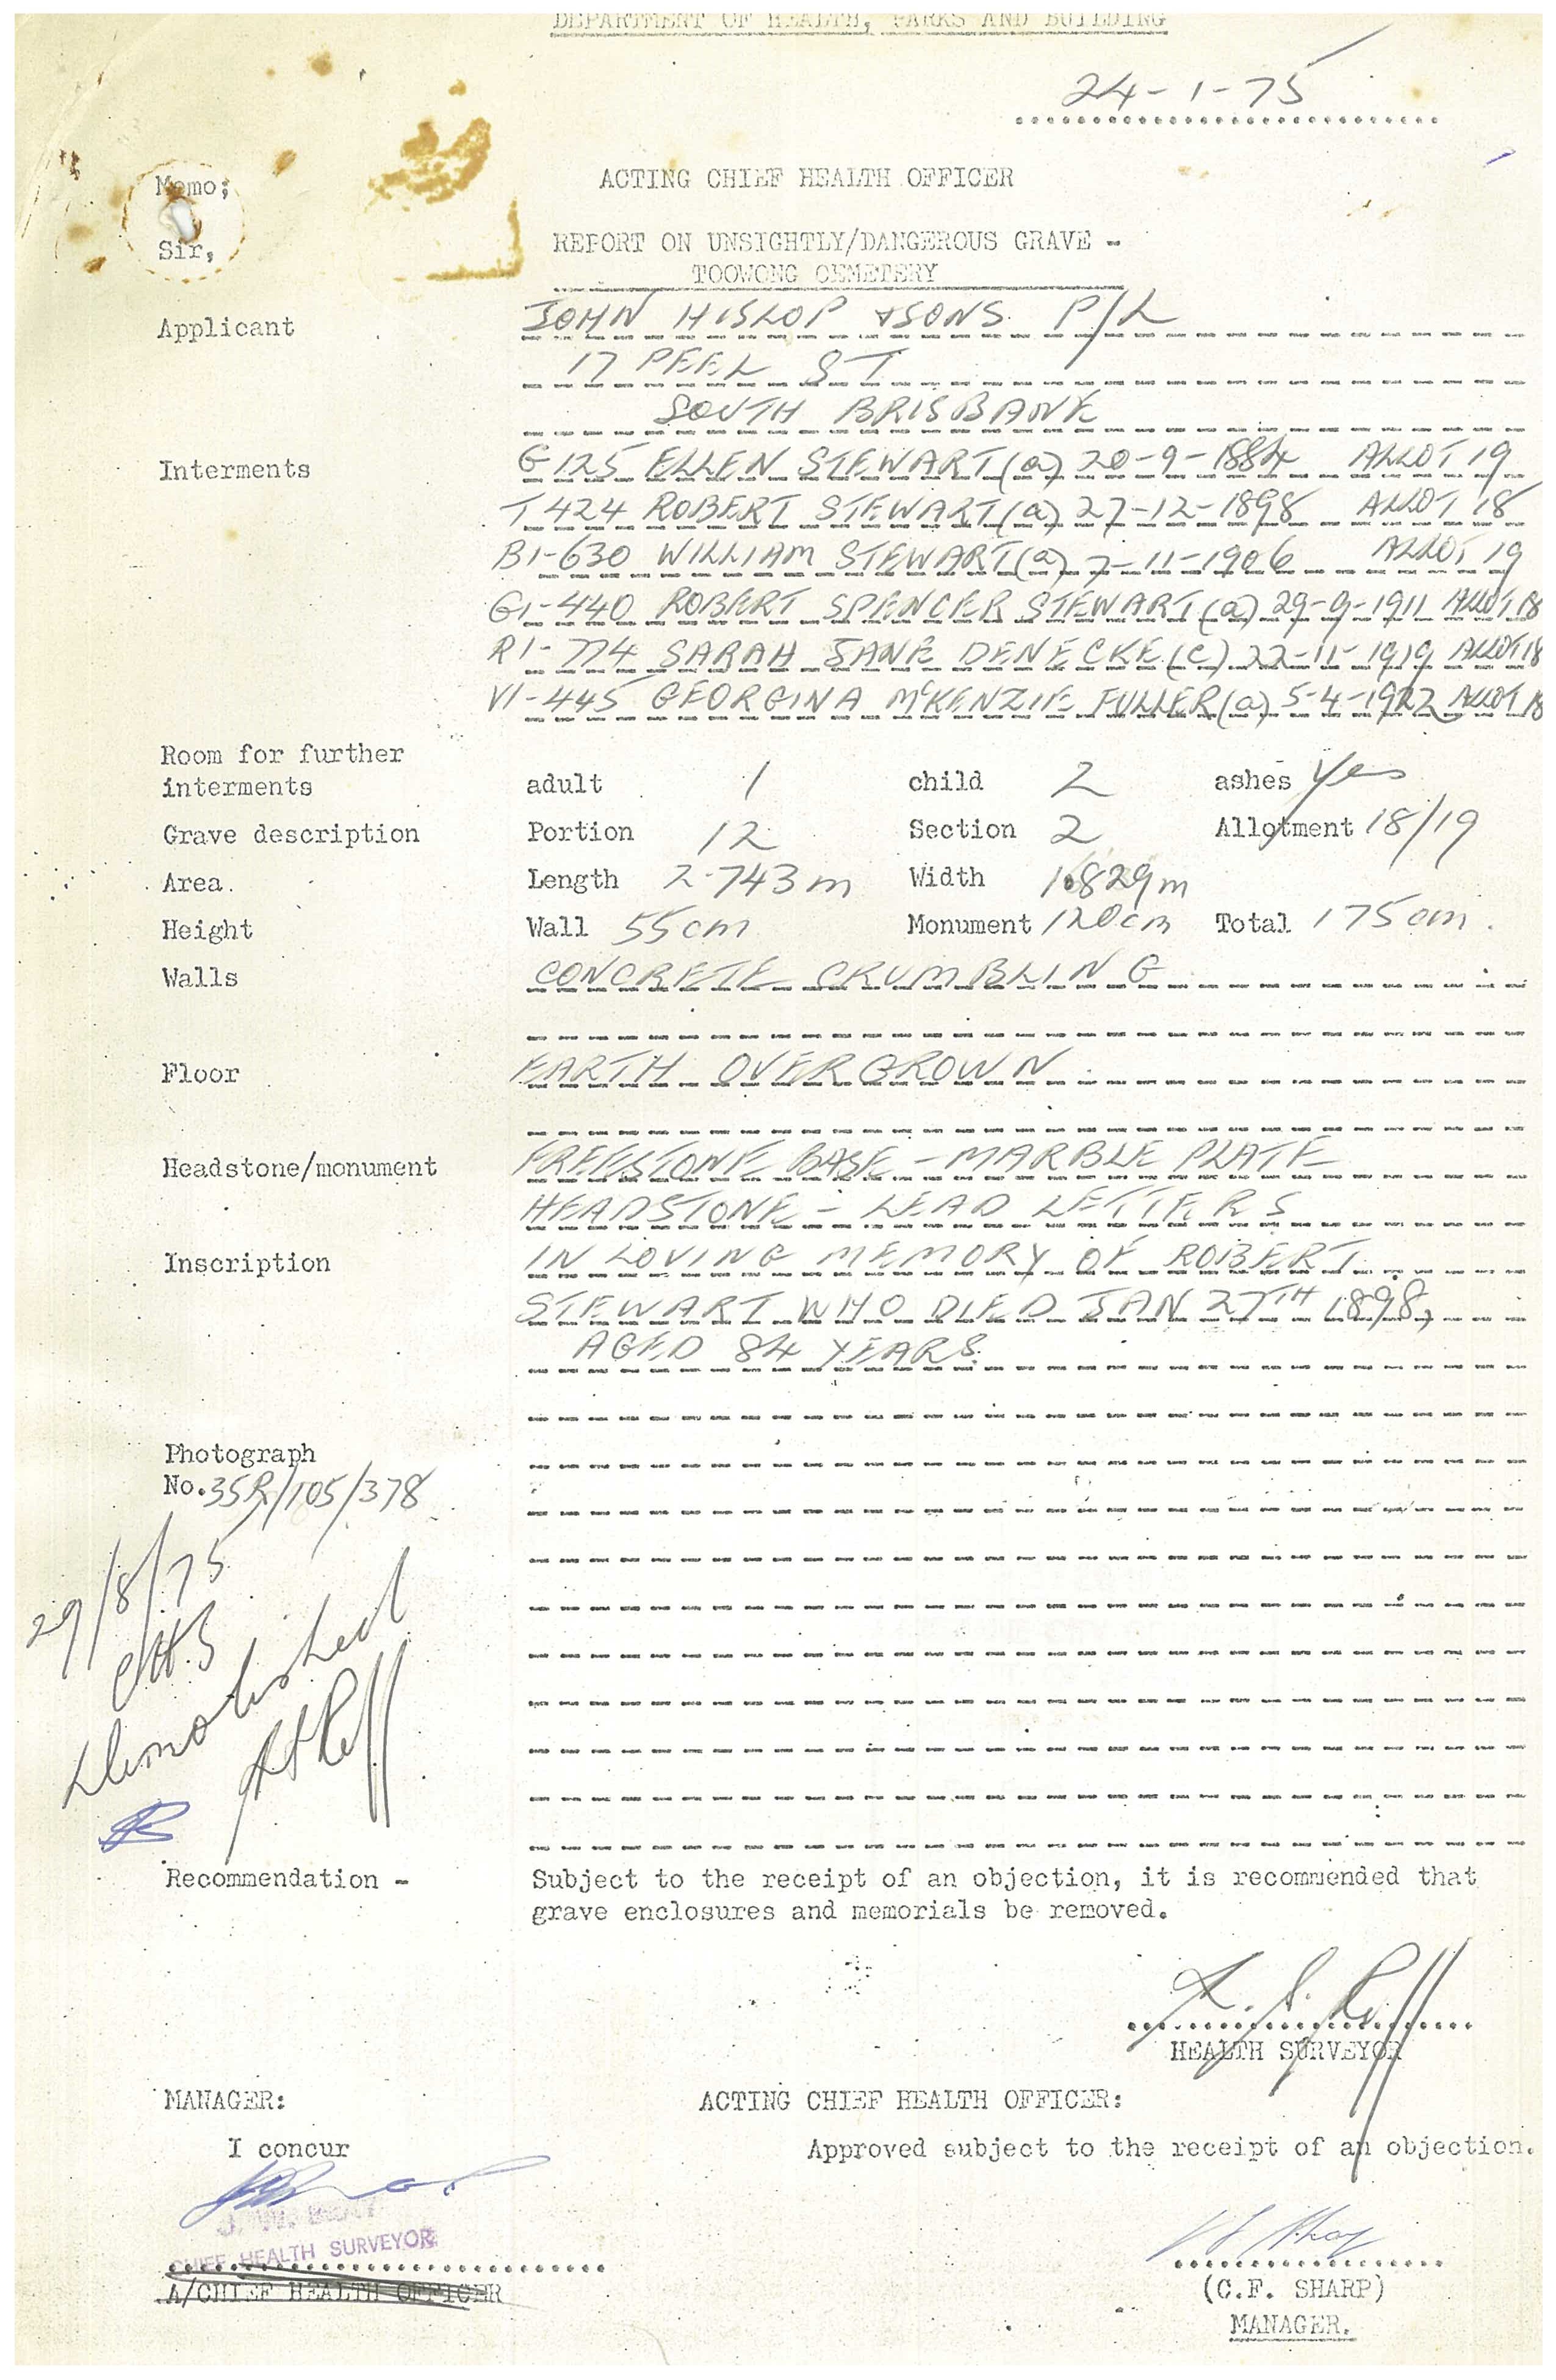 DEPARTMENT OF HEALTH, PARKS AND BUILDING
24-1-75
Memo;
ACTING CHIEF HEALTH OFFICER
Sir,
REPORT ON UNSIGHTLY/DANGEROUS GRAVE -
TOOWONG CEMETERY
Applicant JOHN HISLOP & SONS P/L
17 PEEL ST
SOUTH BRISBANE
Interments G125 ELLEN STEWART (a) 20-9-1884 ALLOT 19
T424 ROBERT STEWART (a) 27-12-1898 ALLOT 18
B1-630 WILLIAM STEWART (a) 7-11-1906 ALLOT 19
G1-440 ROBERT SPENCER STEWART (a) 29-9-1911 ALLOT 18
R1-774 SARAH JANE DENECKE (c) 22-11-1919 ALLOT 18
V1-445 GEORGINA McKENZIE FULLER (a) 5-4-1922 ALLOT 18
Room for further
interments adult 1 child 2 ashes Yes
Grave description Portion 12 Section 2 Allotment 18/19
Area. Length 2.743m Width 1.829m
Height Wall 55cm Monument 120cm Total 175cm.
Walls CONCRETE CRUMBLING
Floor EARTH OVERGROWN
Headstone/monument FREESTONE BASE - MARBLE PLATE
HEADSTONE - LEAD LETTERS
Inscription IN LOVING MEMORY OF ROBERT
STEWART WHO DIED JAN 27TH 1898,
AGED 84 YEARS.
Photograph
No. 35R/105/378
29/8/75
CHS
Demolished
Recommendation - Subject to the receipt of an objection, it is recommended that
grave enclosures and memorials be removed.
HEALTH SURVEYOR
MANAGER: ACTING CHIEF HEALTH OFFICER:
I concur Approved subject to the receipt of an objection.
CHIEF HEALTH SURVEYOR
A/CHIEF HEALTH OFFICER
(C.F. SHARP)
MANAGER.